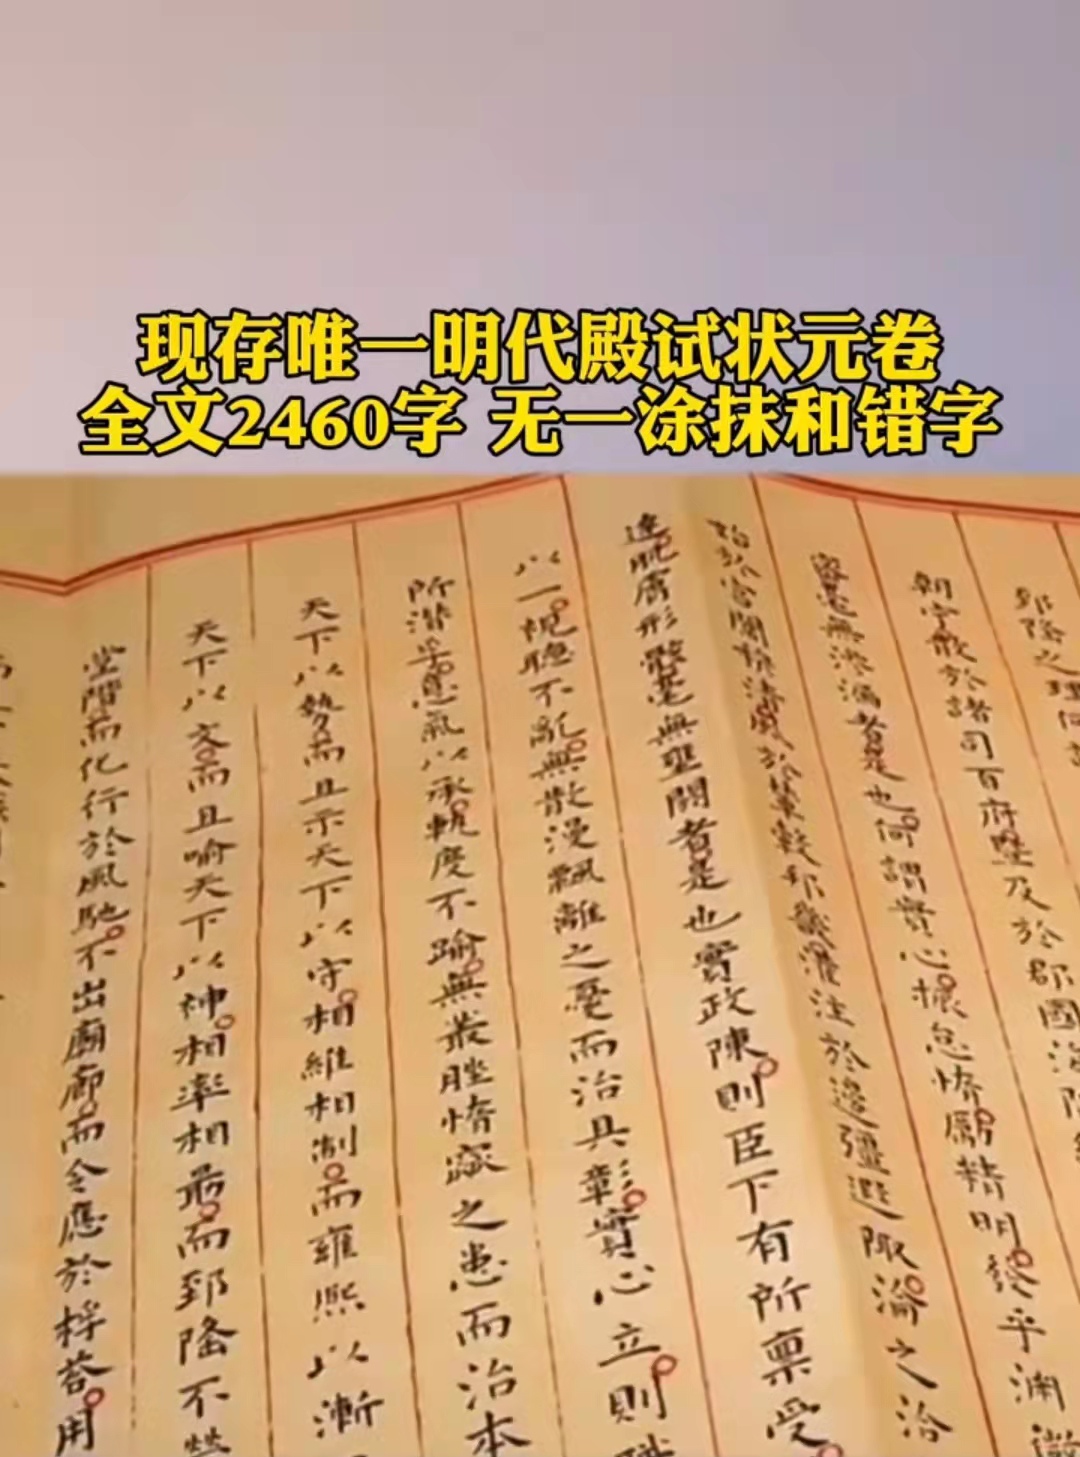 现存唯一明代殿试状元卷
全文2460字 无一涂抹和错字
郅隆之理何
朝宁散於諸司百府暨及於郡國海隅
密毫無滲漏者是也何謂實心振怠惰勵精明發乎淵微
始於宮闈穆清風於輦轂邦畿灌注於邊疆遐陬淪之洽
達肌膚形骸毫無壅閼者是也實政陳則臣下有所禀受
以一視聽不亂無散漫飄離之憂而治具彰實心立則職
所潛孚意氣以承軌度不踰無叢脞惰窳之患而治本
天下以勢而且示天下以守相維相制而雍熙以漸
天下以文而且喻天下以神相率相勗而郅隆不勞
堂階而化行於風馳不出廟廊而令應於桴荅用